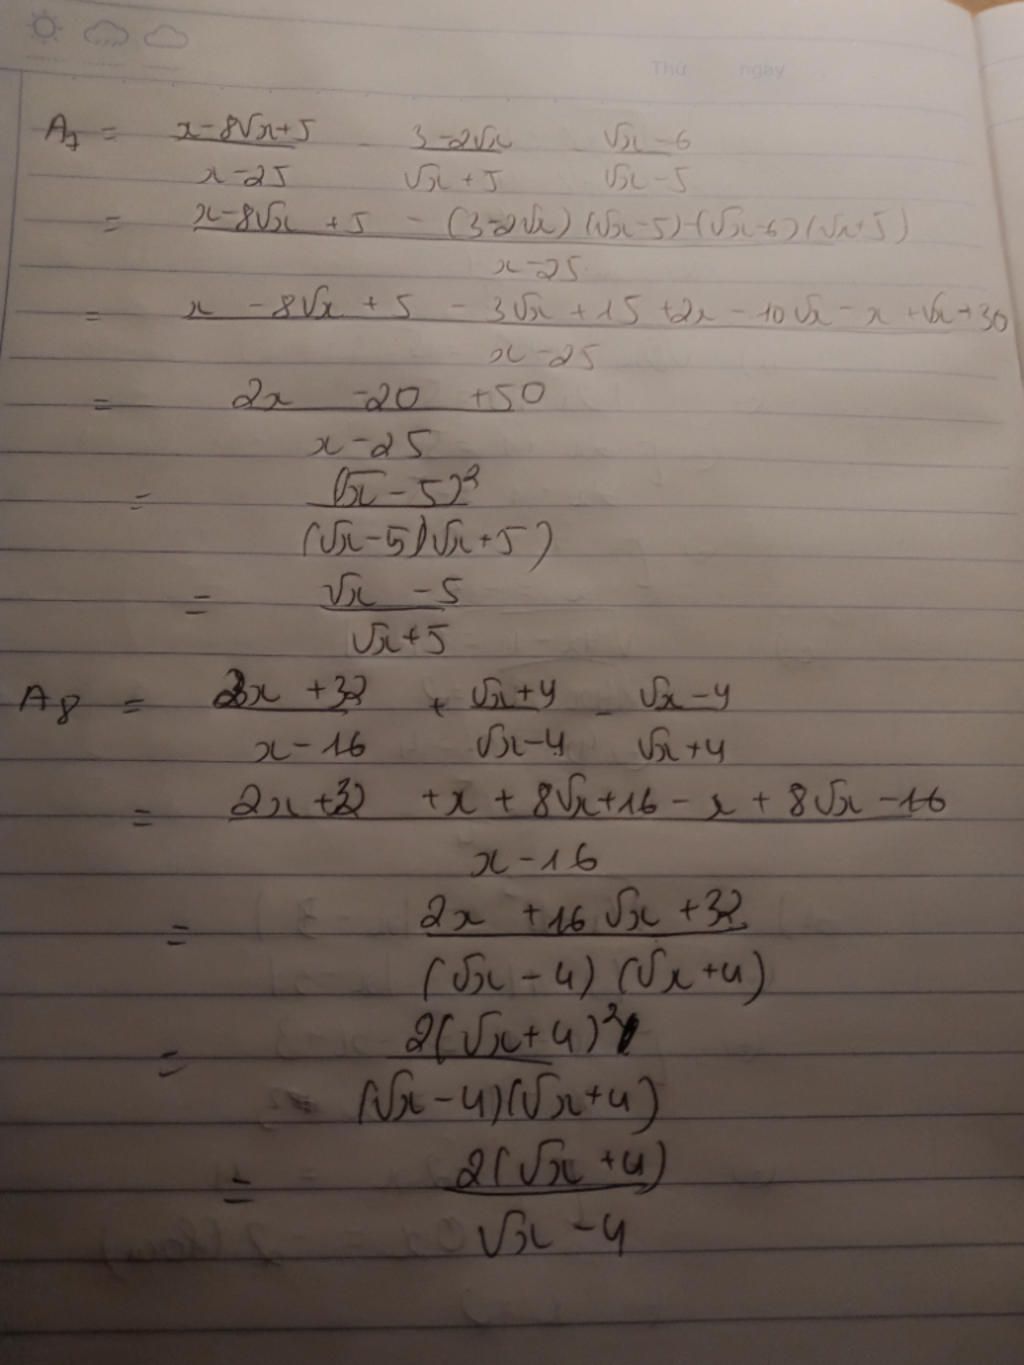 Thứ ngày
A₇ = (x-8√x+5)/(x-25) - (3-2√x)/(√x+5) - (√x-6)/(√x-5)
= (x-8√x+5 - (3-2√x)(√x-5)-(√x-6)(√x+5))/(x-25)
= (x - 8√x + 5 - 3√x + 15 + 2x - 10√x - x + √x + 30)/(x-25)
= (2x -20 +50)/(x-25)
= (√x - 5)²/((√x-5)(√x+5))
= (√x - 5)/(√x+5)
A₈ = (2x + 32)/(x-16) + (√x+4)/(√x-4) - (√x-4)/(√x+4)
= (2x+32 + x + 8√x+16 - x + 8√x - 16)/(x-16)
= (2x + 16√x + 32)/((√x - 4)(√x+4))
= 2(√x+4)²/((√x-4)(√x+4))
= 2(√x+4)/(√x-4)